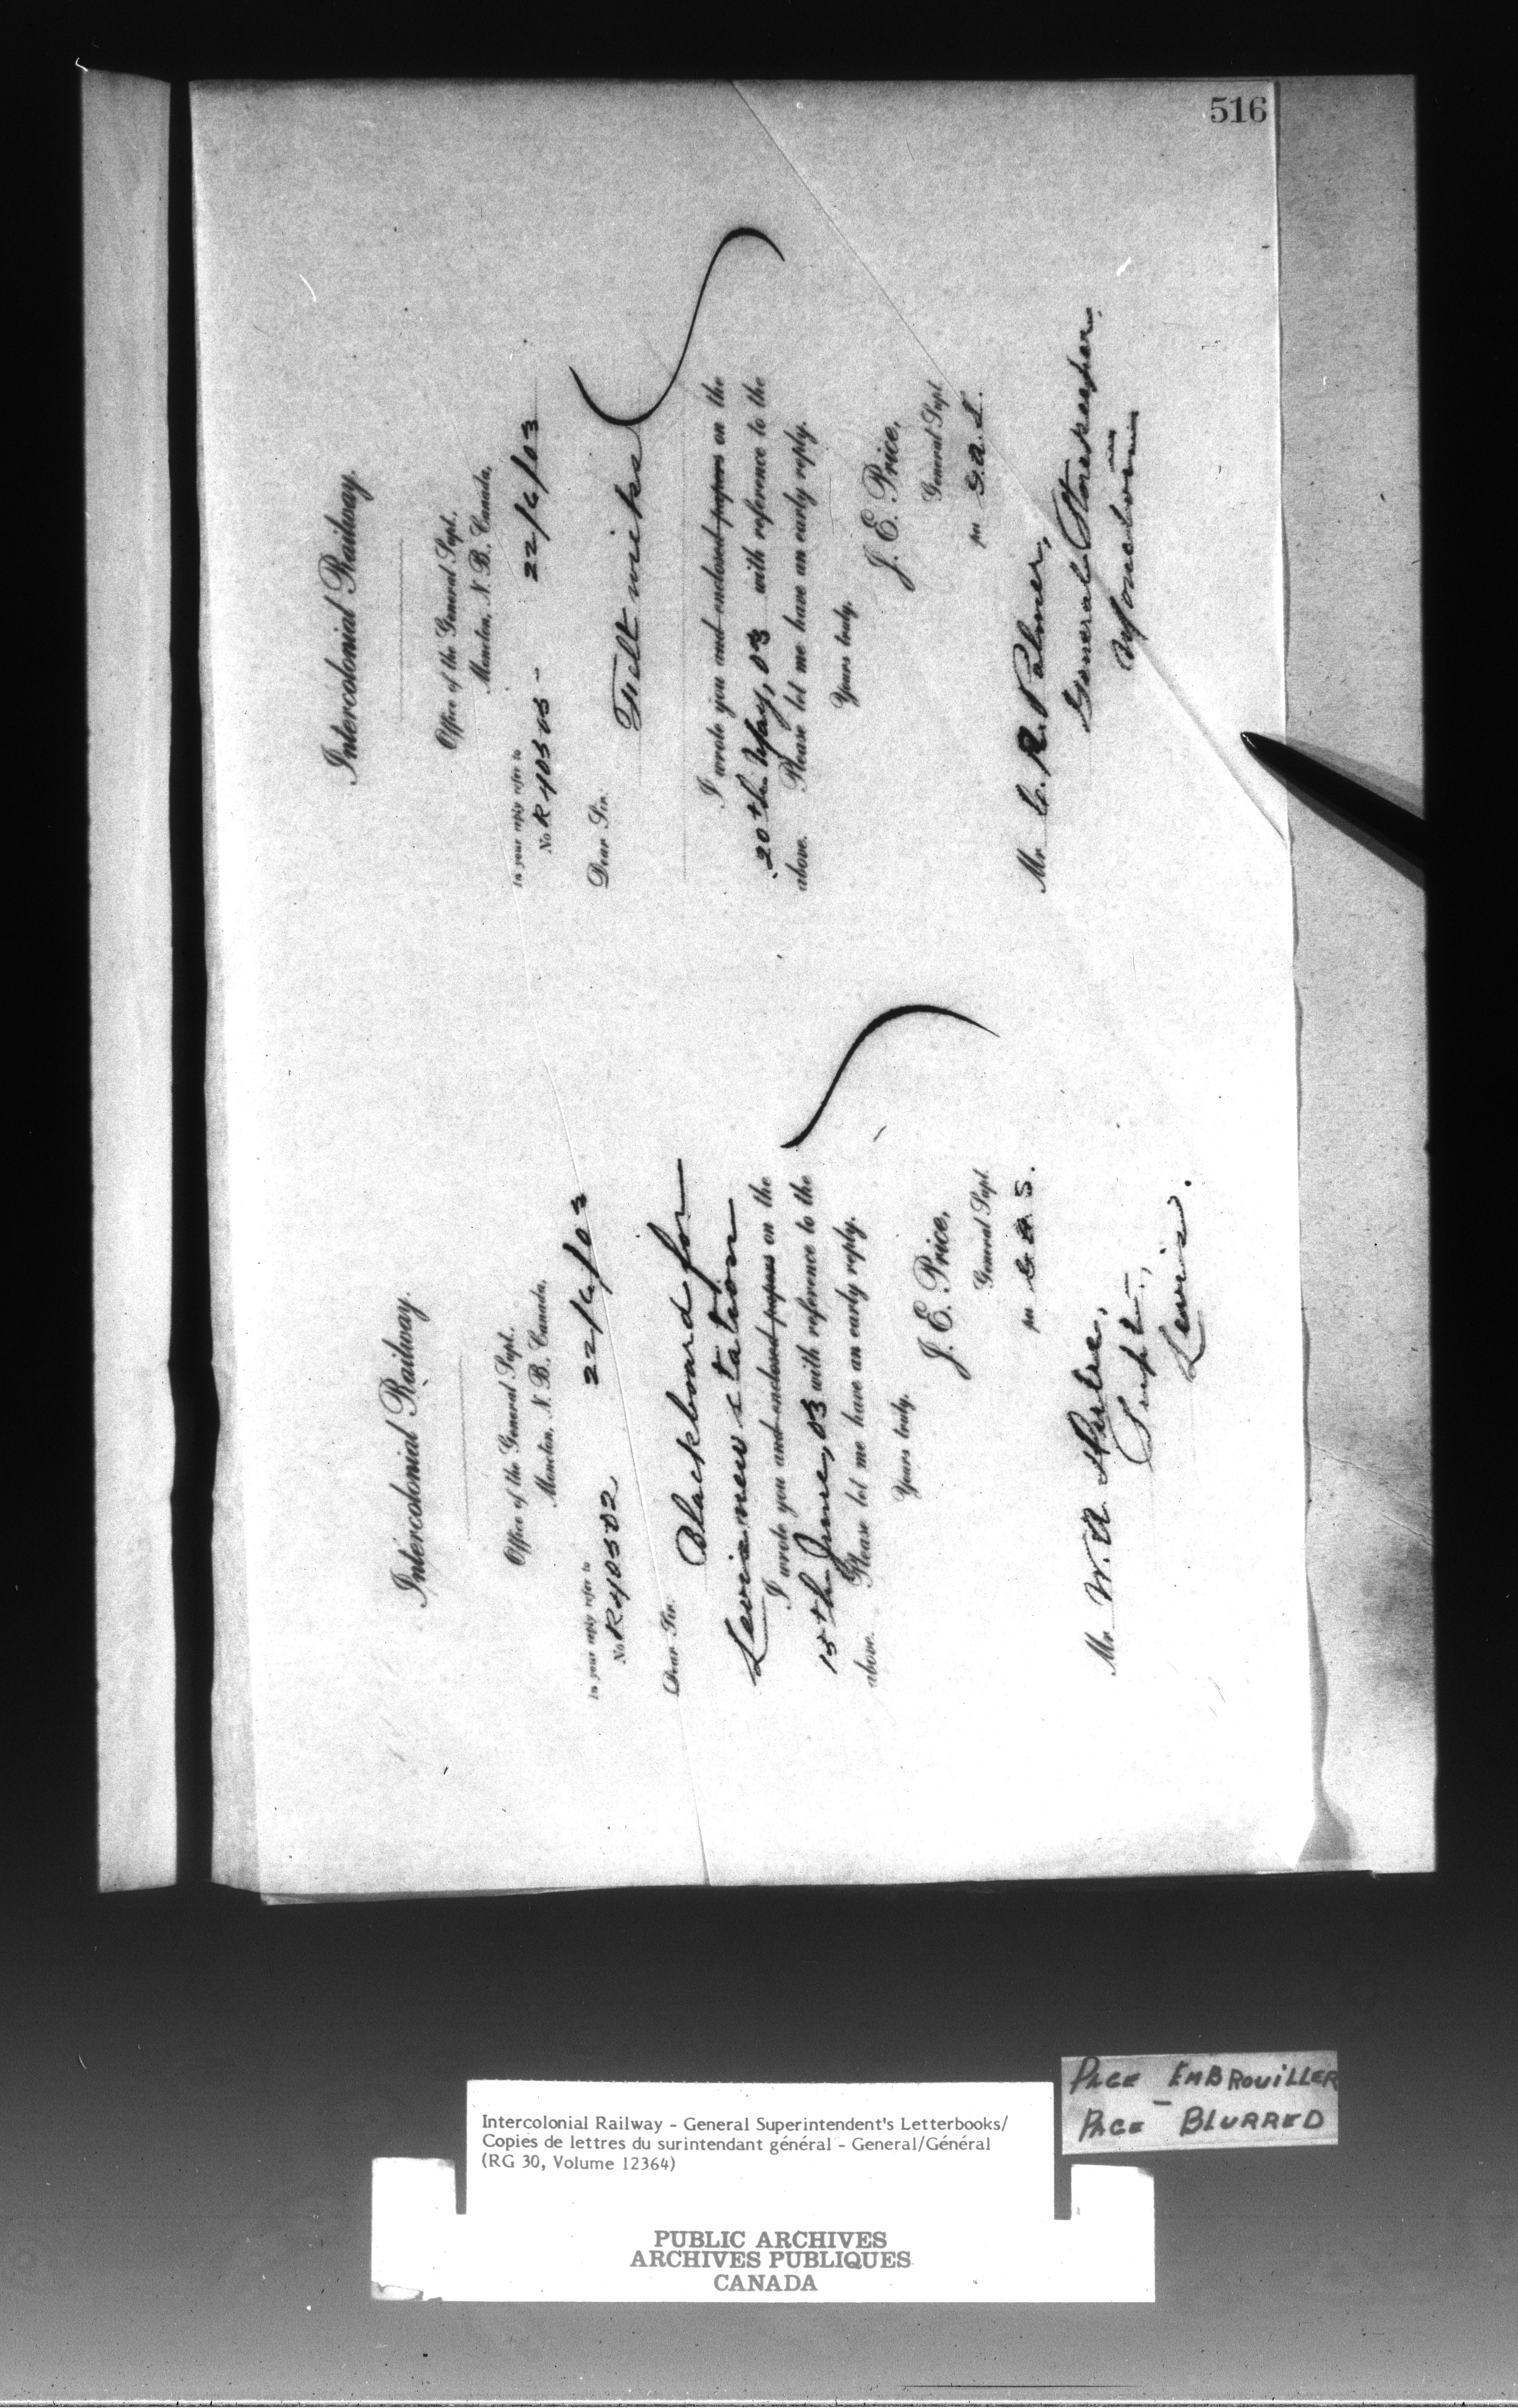 516
Intercolonial Railway.
Office of the General Supt.,
Moncton, N. B., Canada,
In your reply refer to
No R 40502 22/6/03
Dear Sir.
Blackboard for
Levis new station
I wrote you and enclosed papers on the
15th June, 03 with reference to the
above. Please let me have an early reply.
Yours truly,
J. E. Price,
General Supt.
per G. A. S.
Mr W. A.
Supt.,
Levis.
Intercolonial Railway.
Office of the General Supt.,
Moncton, N. B., Canada,
In your reply refer to
No R 40505 - 22/6/03
Dear Sir.
Felt wicks
I wrote you and enclosed papers on the
20th May, 03 with reference to the
above. Please let me have an early reply.
Yours truly,
J. E. Price,
General Supt.
per G. A. S.
Mr C. R. Palmer,
General Storekeeper,
Moncton
PAGE EMBROUILLER
PAGE - BLURRED
Intercolonial Railway - General Superintendent's Letterbooks/
Copies de lettres du surintendant général - General/Général
(RG 30, Volume 12364)
PUBLIC ARCHIVES
ARCHIVES PUBLIQUES
CANADA